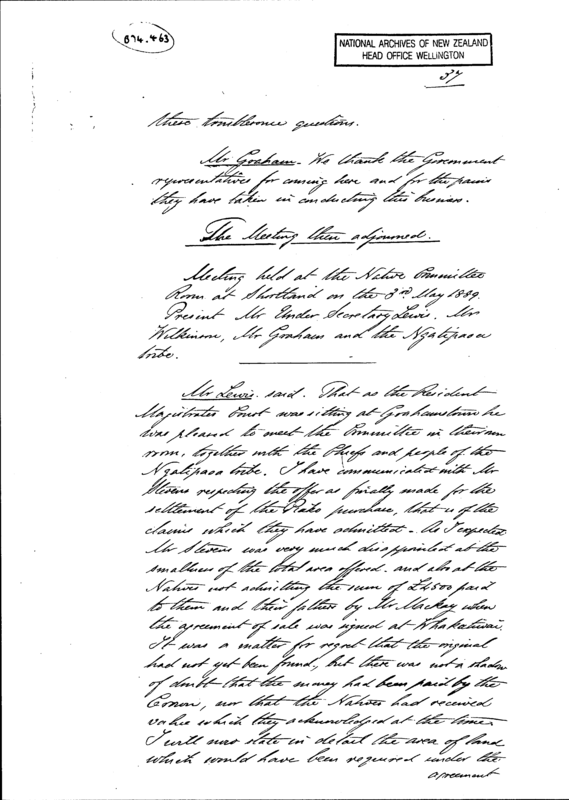 874.463
NATIONAL ARCHIVES OF NEW ZEALAND
HEAD OFFICE WELLINGTON
37
these troublesome questions.
Mr Graham. We thank the Government
representatives for coming here and for the pains
they have taken in conducting this business.
The Meeting then adjourned.
Meeting held at the Native Committee
Room at Shortland on the 3rd May 1889.
Present Mr Under Secretary Lewis. Mr
Wilkinson, Mr Graham and the Ngatipaoa
tribe.
Mr Lewis. said. That as the Resident
Magistrates Court was sitting at Grahamstown he
was pleased to meet the Committee in their own
room, together with the Chiefs and people of the
Ngatipaoa tribe. I have communicated with Mr
Stevens respecting the offer as finally made for the
settlement of the Piako purchase, that is of the
claims which they have admitted - As I expected
Mr Stevens was very much disappointed at the
smallness of the total area offered. and also at the
Natives not admitting the sum of £4500 paid
to them and their fathers by Mr Mackay when
the agreement of sale was signed at Whakatiwai.
It was a matter for regret that the original
had not yet been found, but there was not a shadow
of doubt that the money had been paid by the
Crown, nor that the Natives had received
value which they acknowledged at the time.
I will now state in detail the area of land
which would have been required under the
agreement